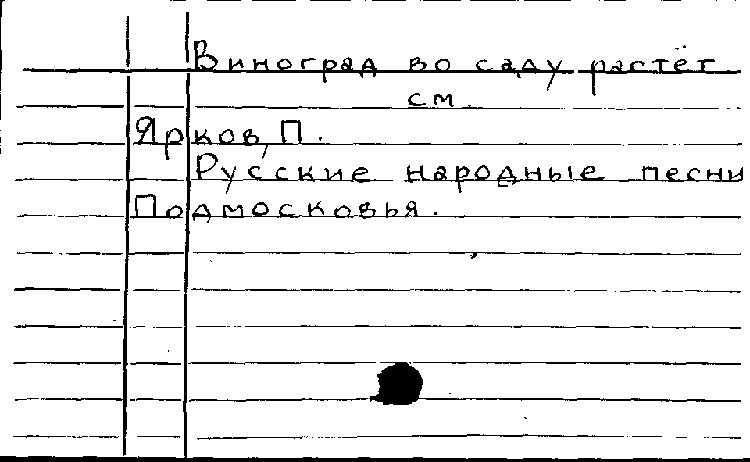 Виноград во саду растёт
см.
Ярков, П.
Русские народные песни
Подмосковья.